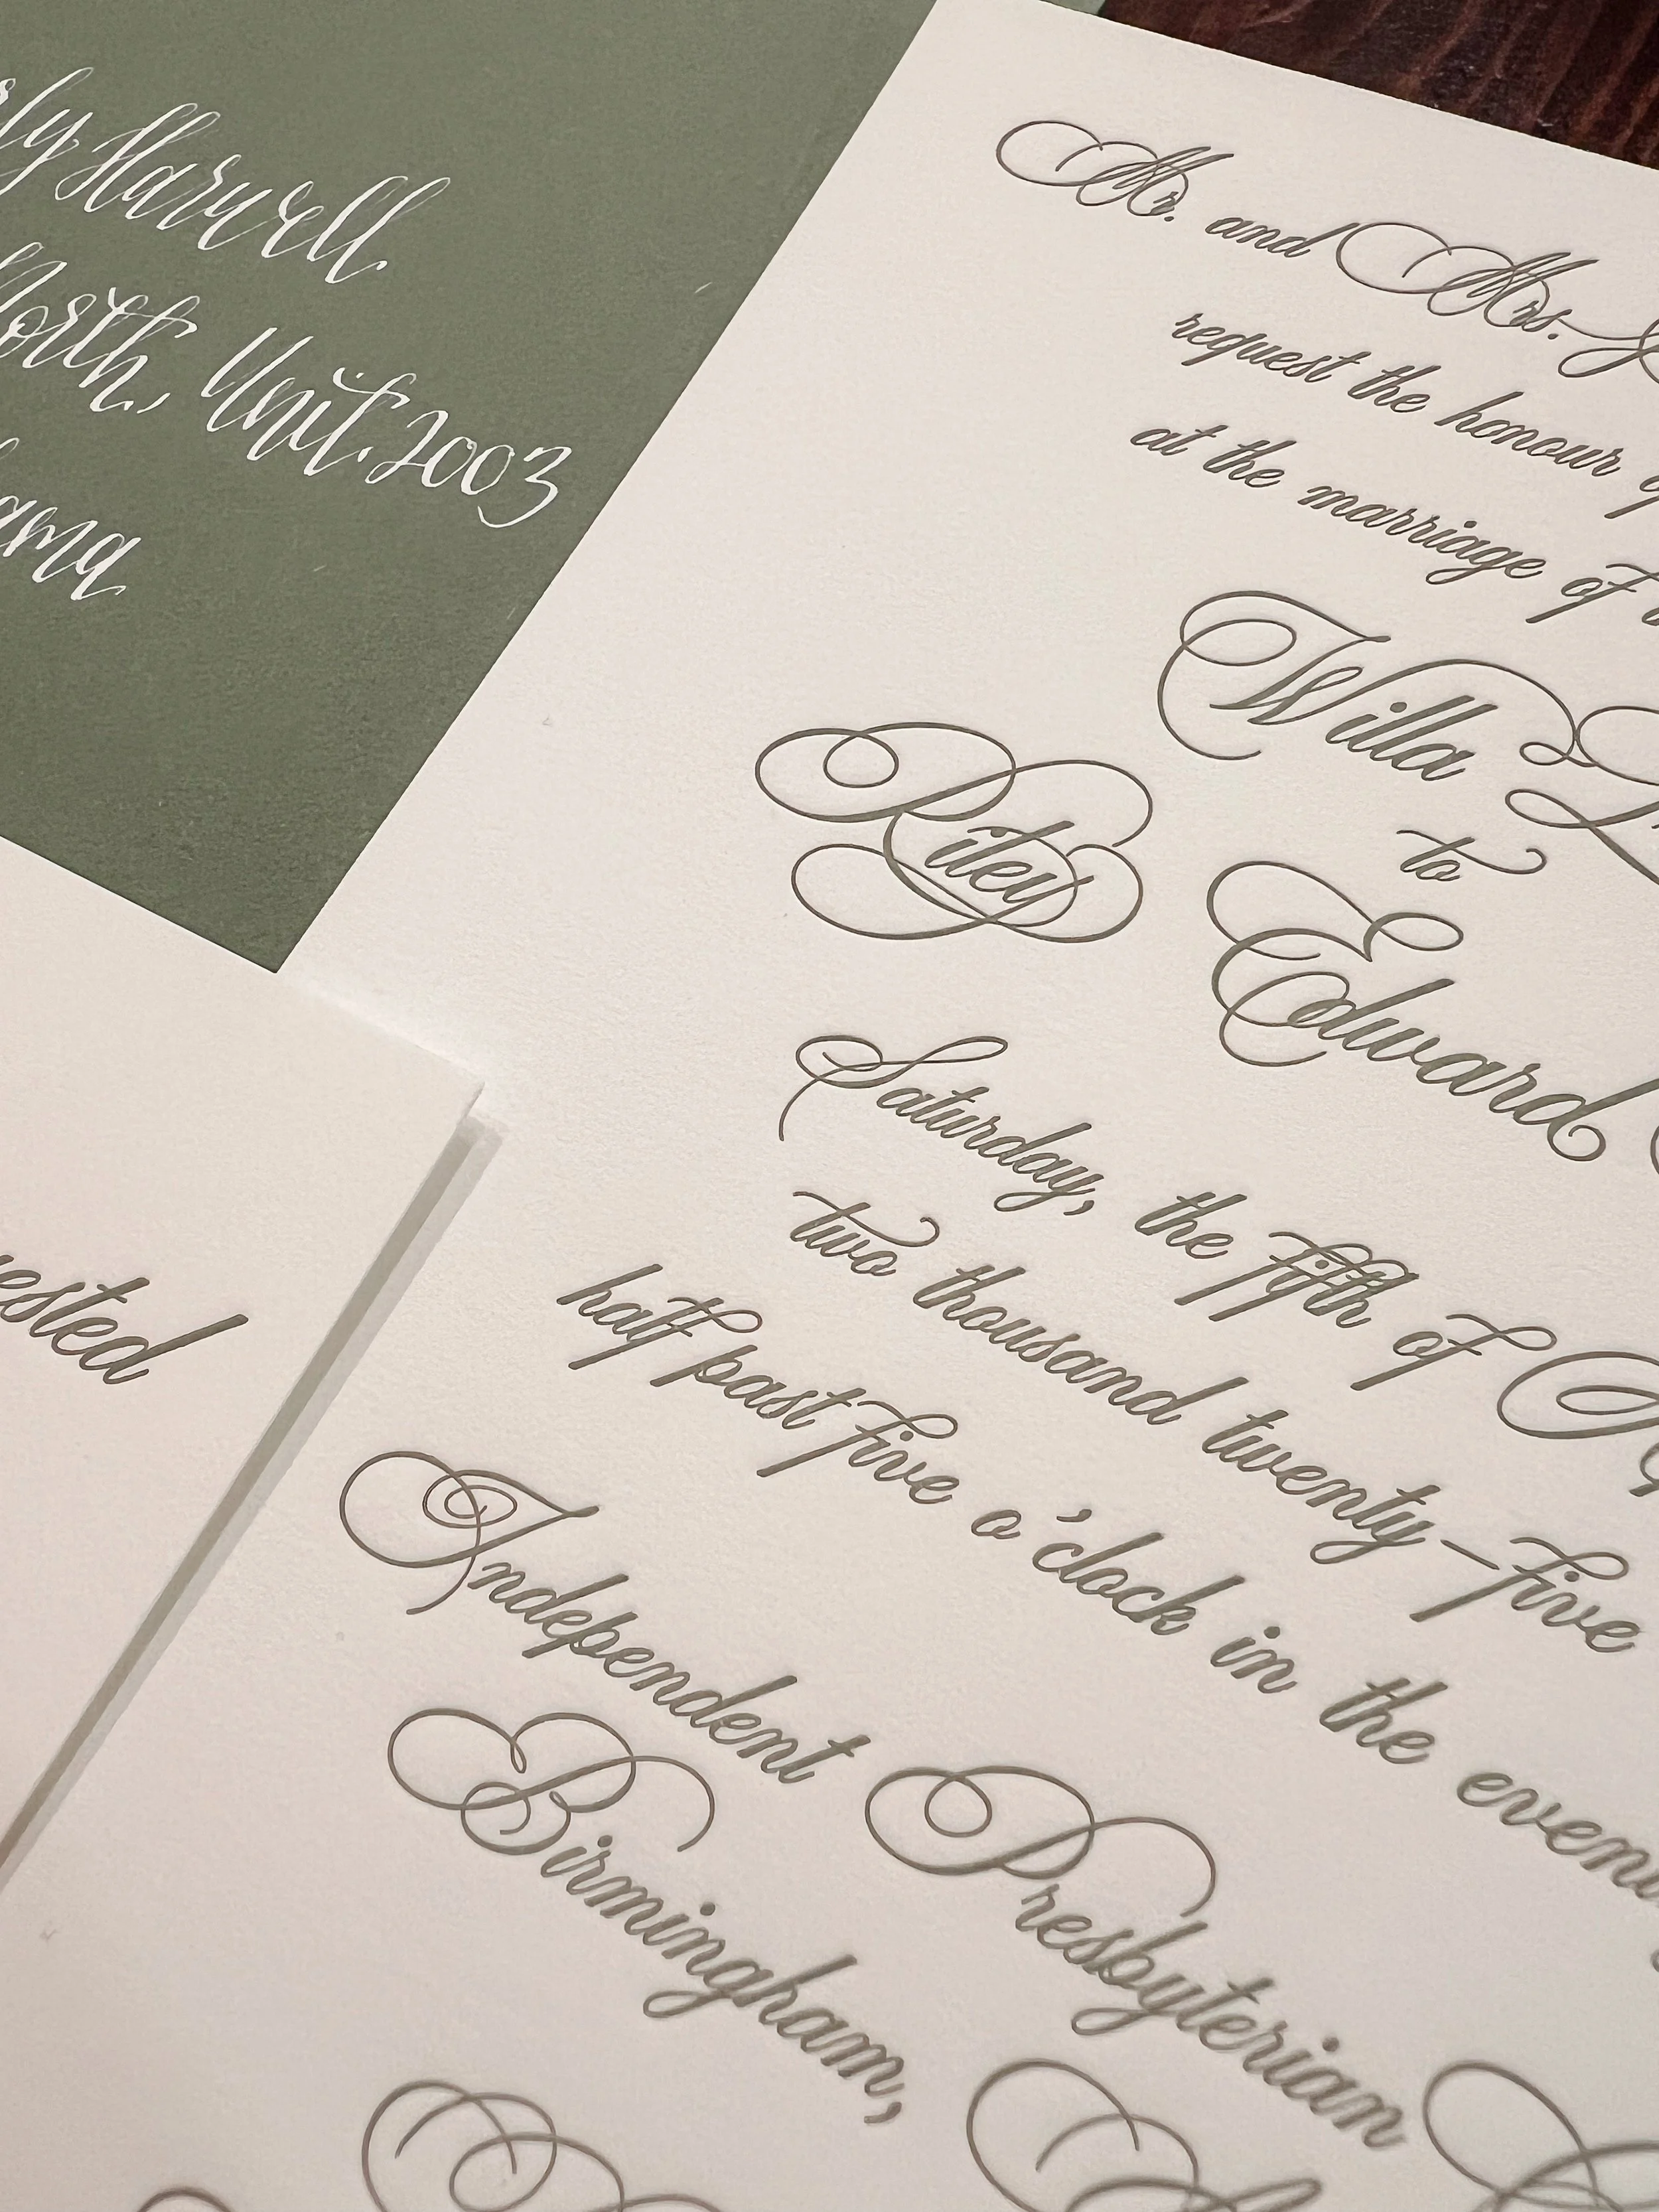 Harwell
North, Unit 2003
Mr. and Mrs.
request the honour
at the marriage of
Willa
to
Riley Edward
Saturday, the fifth of
two thousand twenty-five
half past five o'clock in the
Independent Presbyterian
Birmingham,